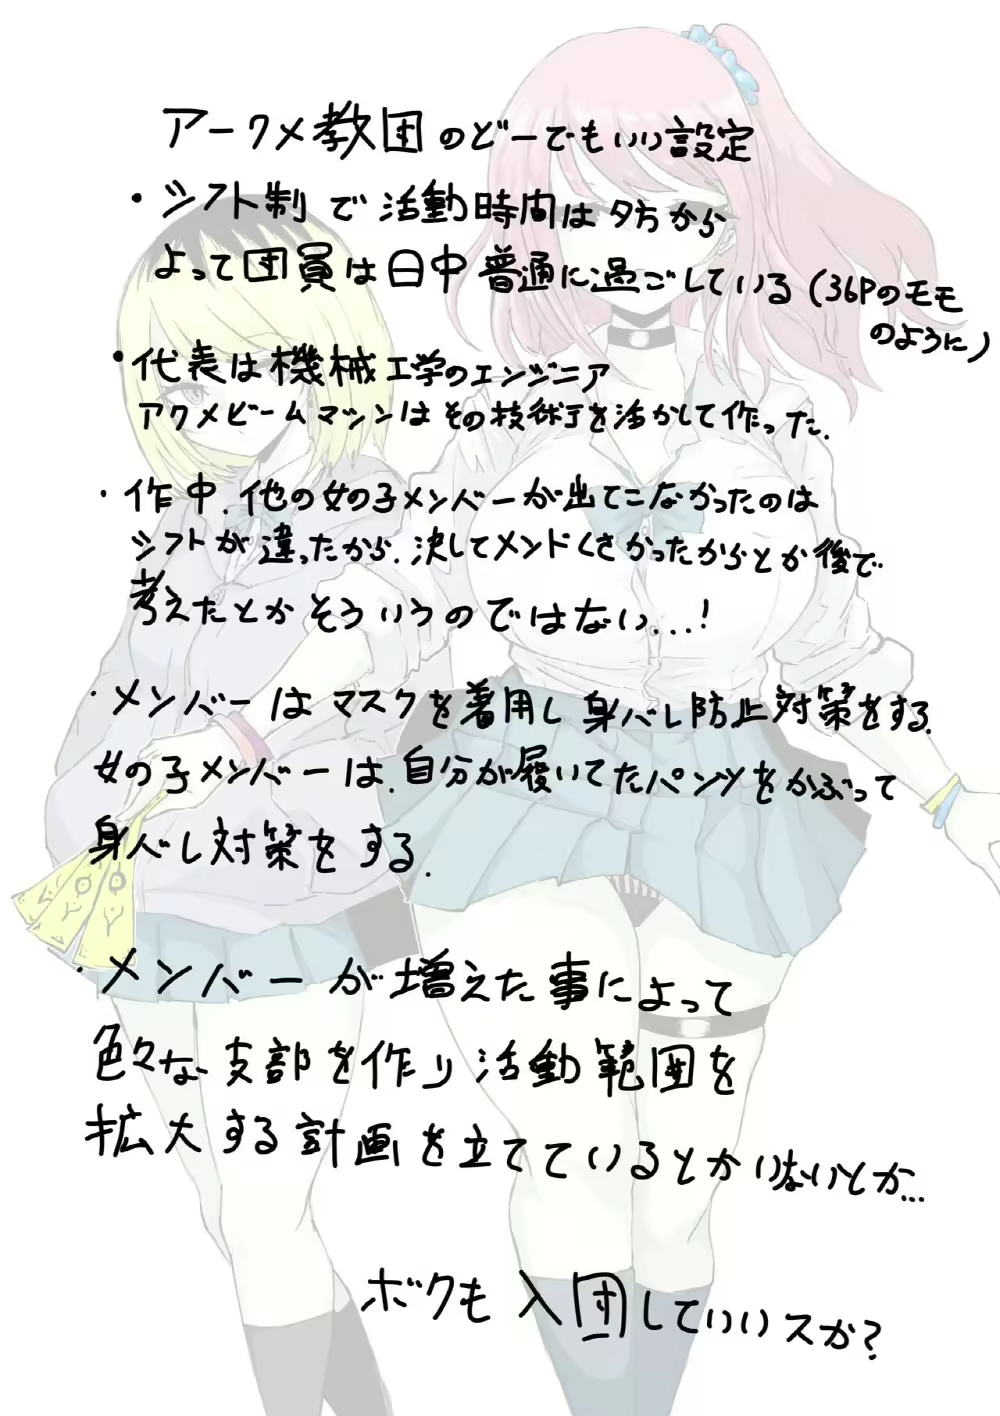 アークメ教団のどーでもいい設定
・シフト制で活動時間は夕方から
よって団員は日中普通に過ごしている(36Pのモモ
のように)
・代表は機械工学のエンジニア
アクメビームマシンはその技術を活かして作った.
・作中.他の女の子メンバーが出てこなかったのは
シフトが違ったから.決してメンドくさかったからとか後で
考えたとかそういうのではない...!
・メンバーはマスクを着用し身バレ防止対策をする.
女の子メンバーは.自分が履いてたパンツをかぶって
身バレ対策をする.
・メンバーが増えた事によって
色々な支部を作り活動範囲を
拡大する計画を立てているとかいないとか...
ボクも入団していいスか?